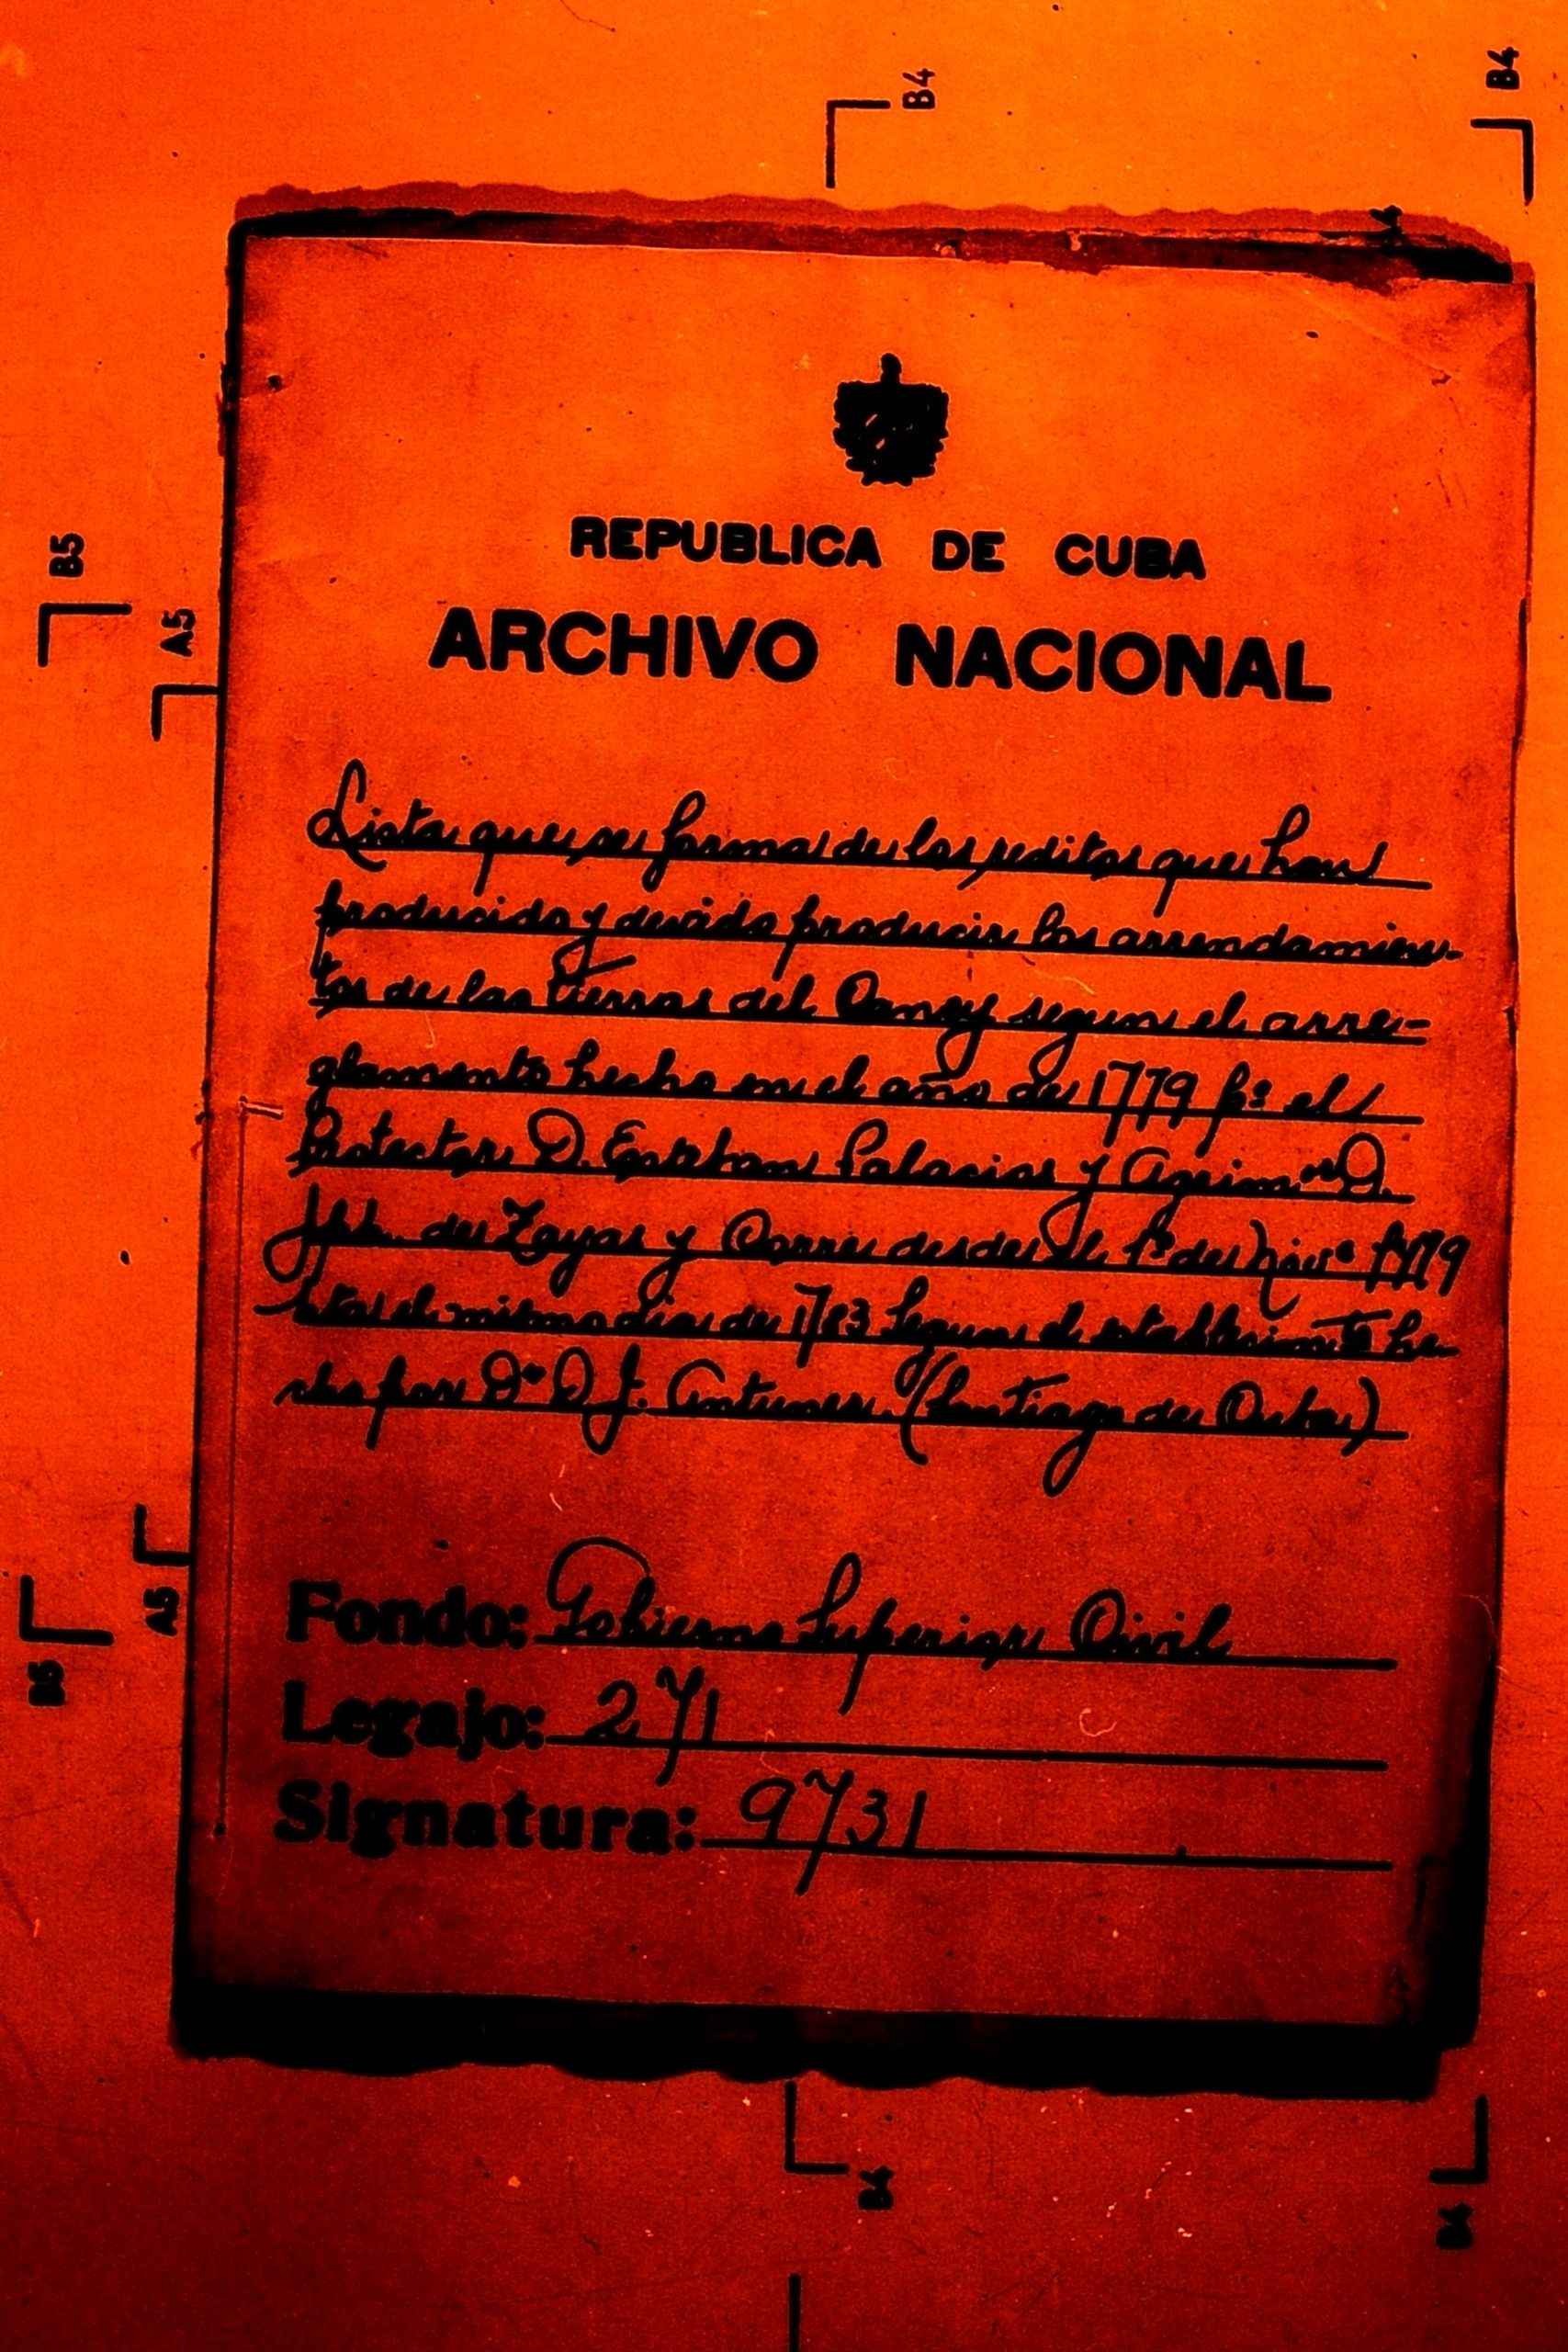 B4
B4
REPUBLICA DE CUBA
ARCHIVO NACIONAL
B5
A5
Lista que se forma de los reditos que han
producido y devido producir los arrendamien-
tos de las tierras del Caney segun el arre-
glamento hecho en el año de 1779 pr. el
Protector D. Esteban Palacios y Agrim.or D.
de Zayas y Corre desde el 1º de 1779
el mismo dia de 1783 Segun el establecimto he-
cho por Dn D J. Antunez. (Santiago de Cuba)
Fondo: Gobierno Superior Civil
Legajo: 271
Signatura: 9731
A5
B5
B4
B4